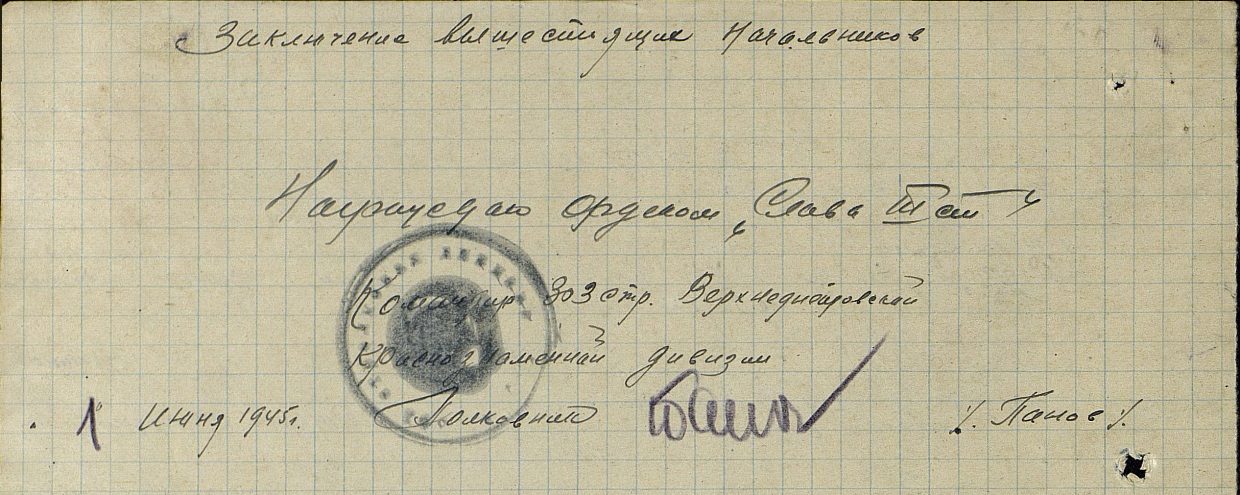 Заключение вышестоящих Начальников
Награждаю орденом „Слава III ст"
Командир 303 стр. Верхнеднепровской
Краснознаменной дивизии
1 Июня 1945 г. Полковник /. Панов /.